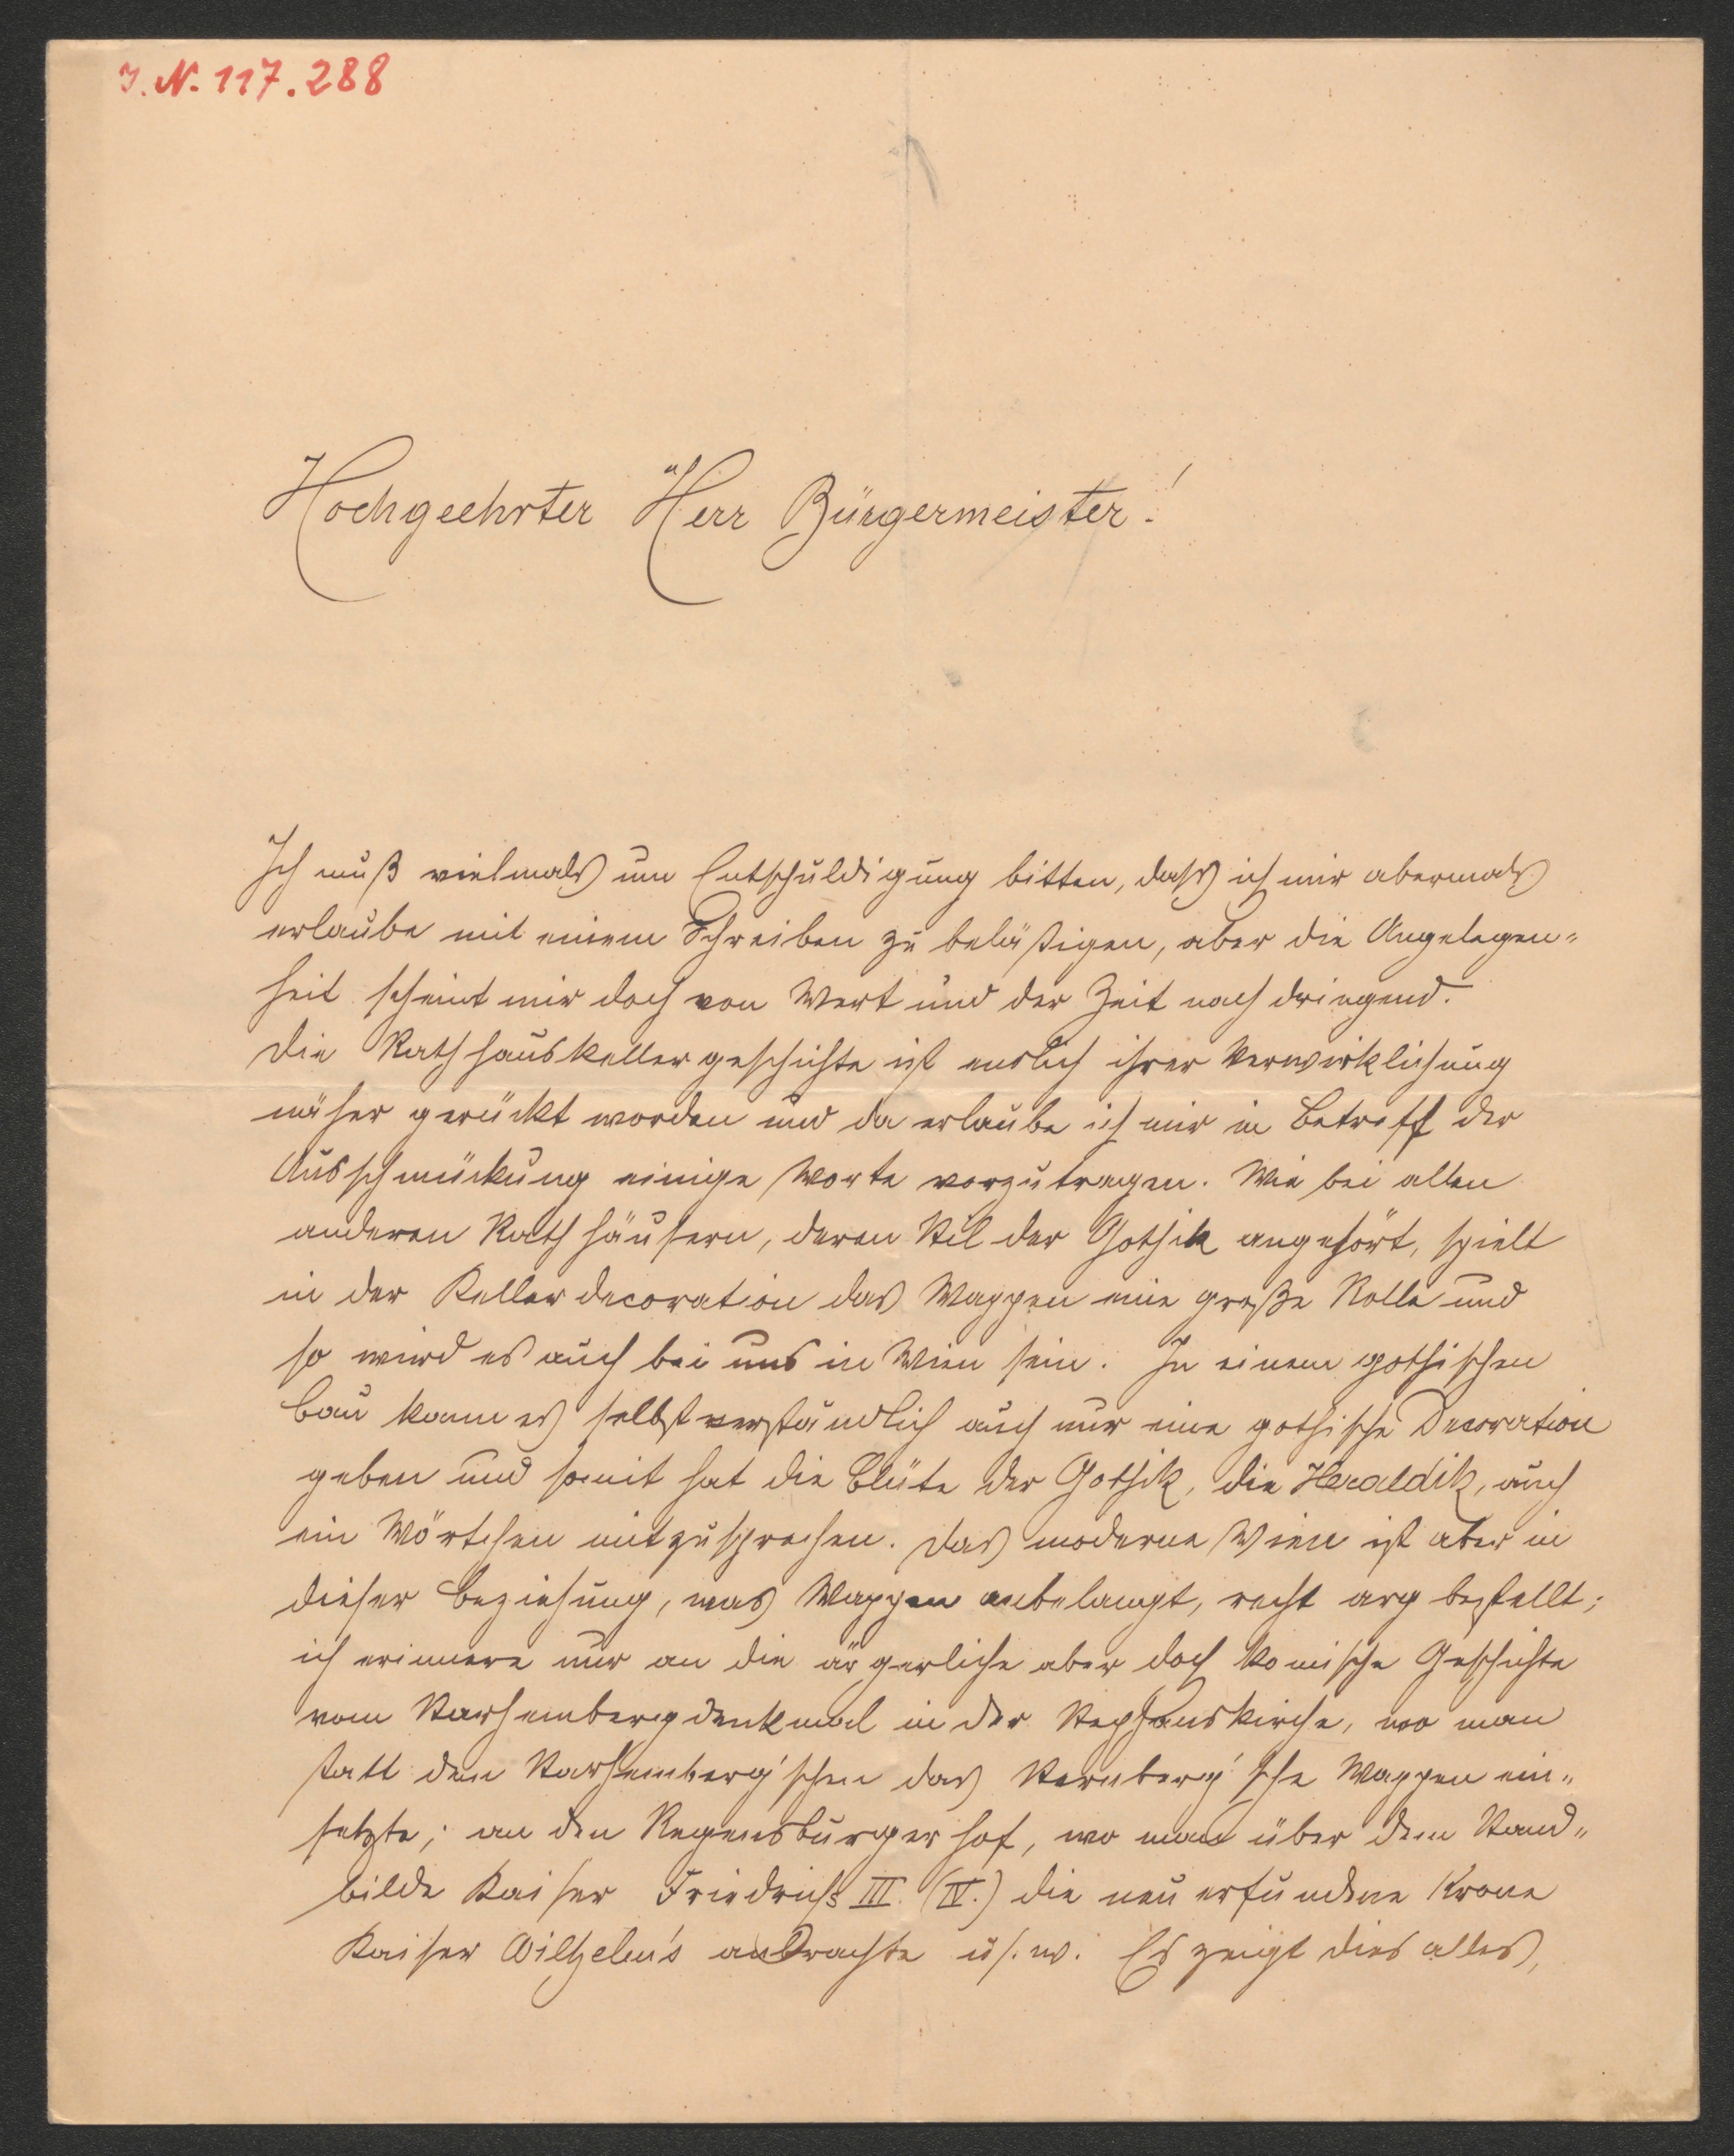 J. N. 117.288
Hochgeehrter Herr Bürgermeister!
Ich muß vielmals um Entschuldigung bitten, dass ich mir abermals
erlaube mit einem Schreiben zu belästigen, aber die Angelegen=
heit scheint mir doch von Wert und der Zeit nach dringend.
Die Rathhauskellergeschichte ist endlich ihrer Verwirklichung
näher gerückt worden und da erlaube ich mir in Betreff der
Ausschmückung einige Worte vorzutragen. Wie bei allen
anderen Rathhäusern, deren Stil der Gothik angehört, spielt
in der Kellerdecoration das Wappen eine große Rolle und
so wird es auch bei uns in Wien sein. In einem gothischen
Bau kann es selbstverständlich auch nur eine gothische Decoration
geben und somit hat die Blüte der Gothik, die Heraldik, auch
ein Wörtchen mitzusprechen. Das moderne Wien ist aber in
dieser Beziehung, was Wappen anbelangt, recht arg bestellt;
ich erinnere nur an die ärgerliche aber doch komische Geschichte
vom Starhembergdenkmal in der Stephanskirche, wo man
statt dem Starhemberg'schen das Sternberg'sche Wappen ein=
setzte; an den Regensburgerhof, wo man über dem Stand=
bilde Kaiser Friedrichs III. (IV.) die neu erfundene Krone
Kaiser Wilhelm's anbrachte u. s. w. Es zeigt dies alles,